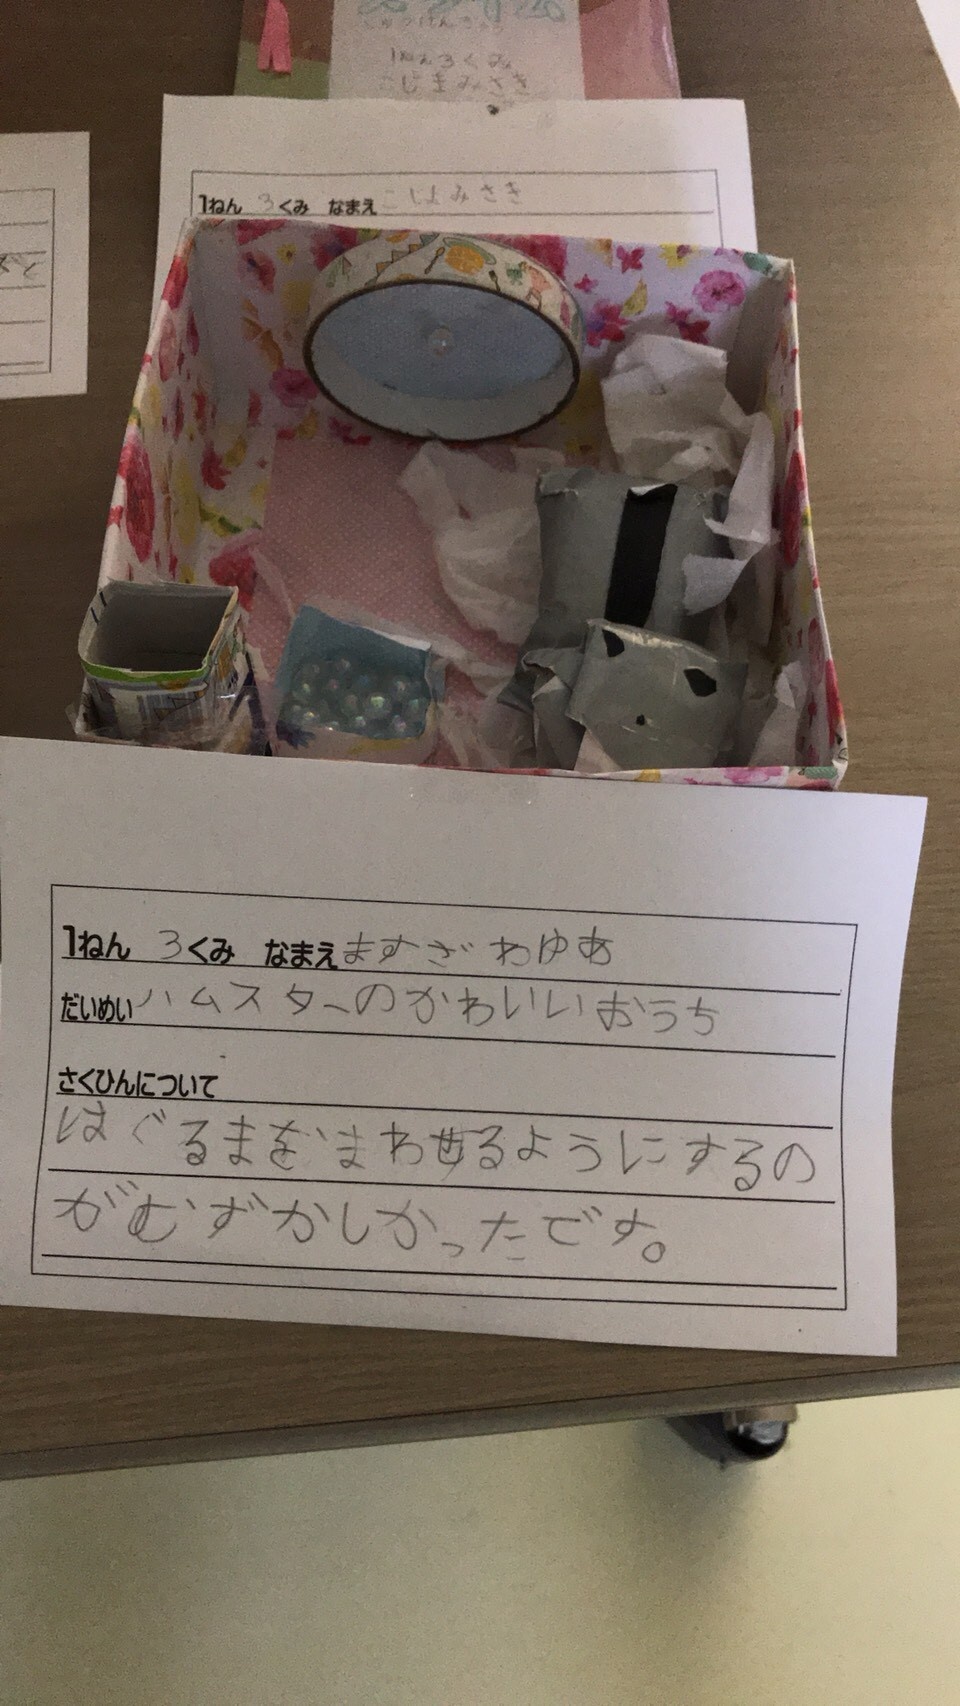 1ねん3くみ
こじまみさき
1ねん 3くみ なまえ こじまみさき
1ねん 3くみ なまえ ますざわゆあ
だいめい ハムスターのかわいいおうち
さくひんについて
はぐるまをまわせるようにするの
がむずかしかったです。